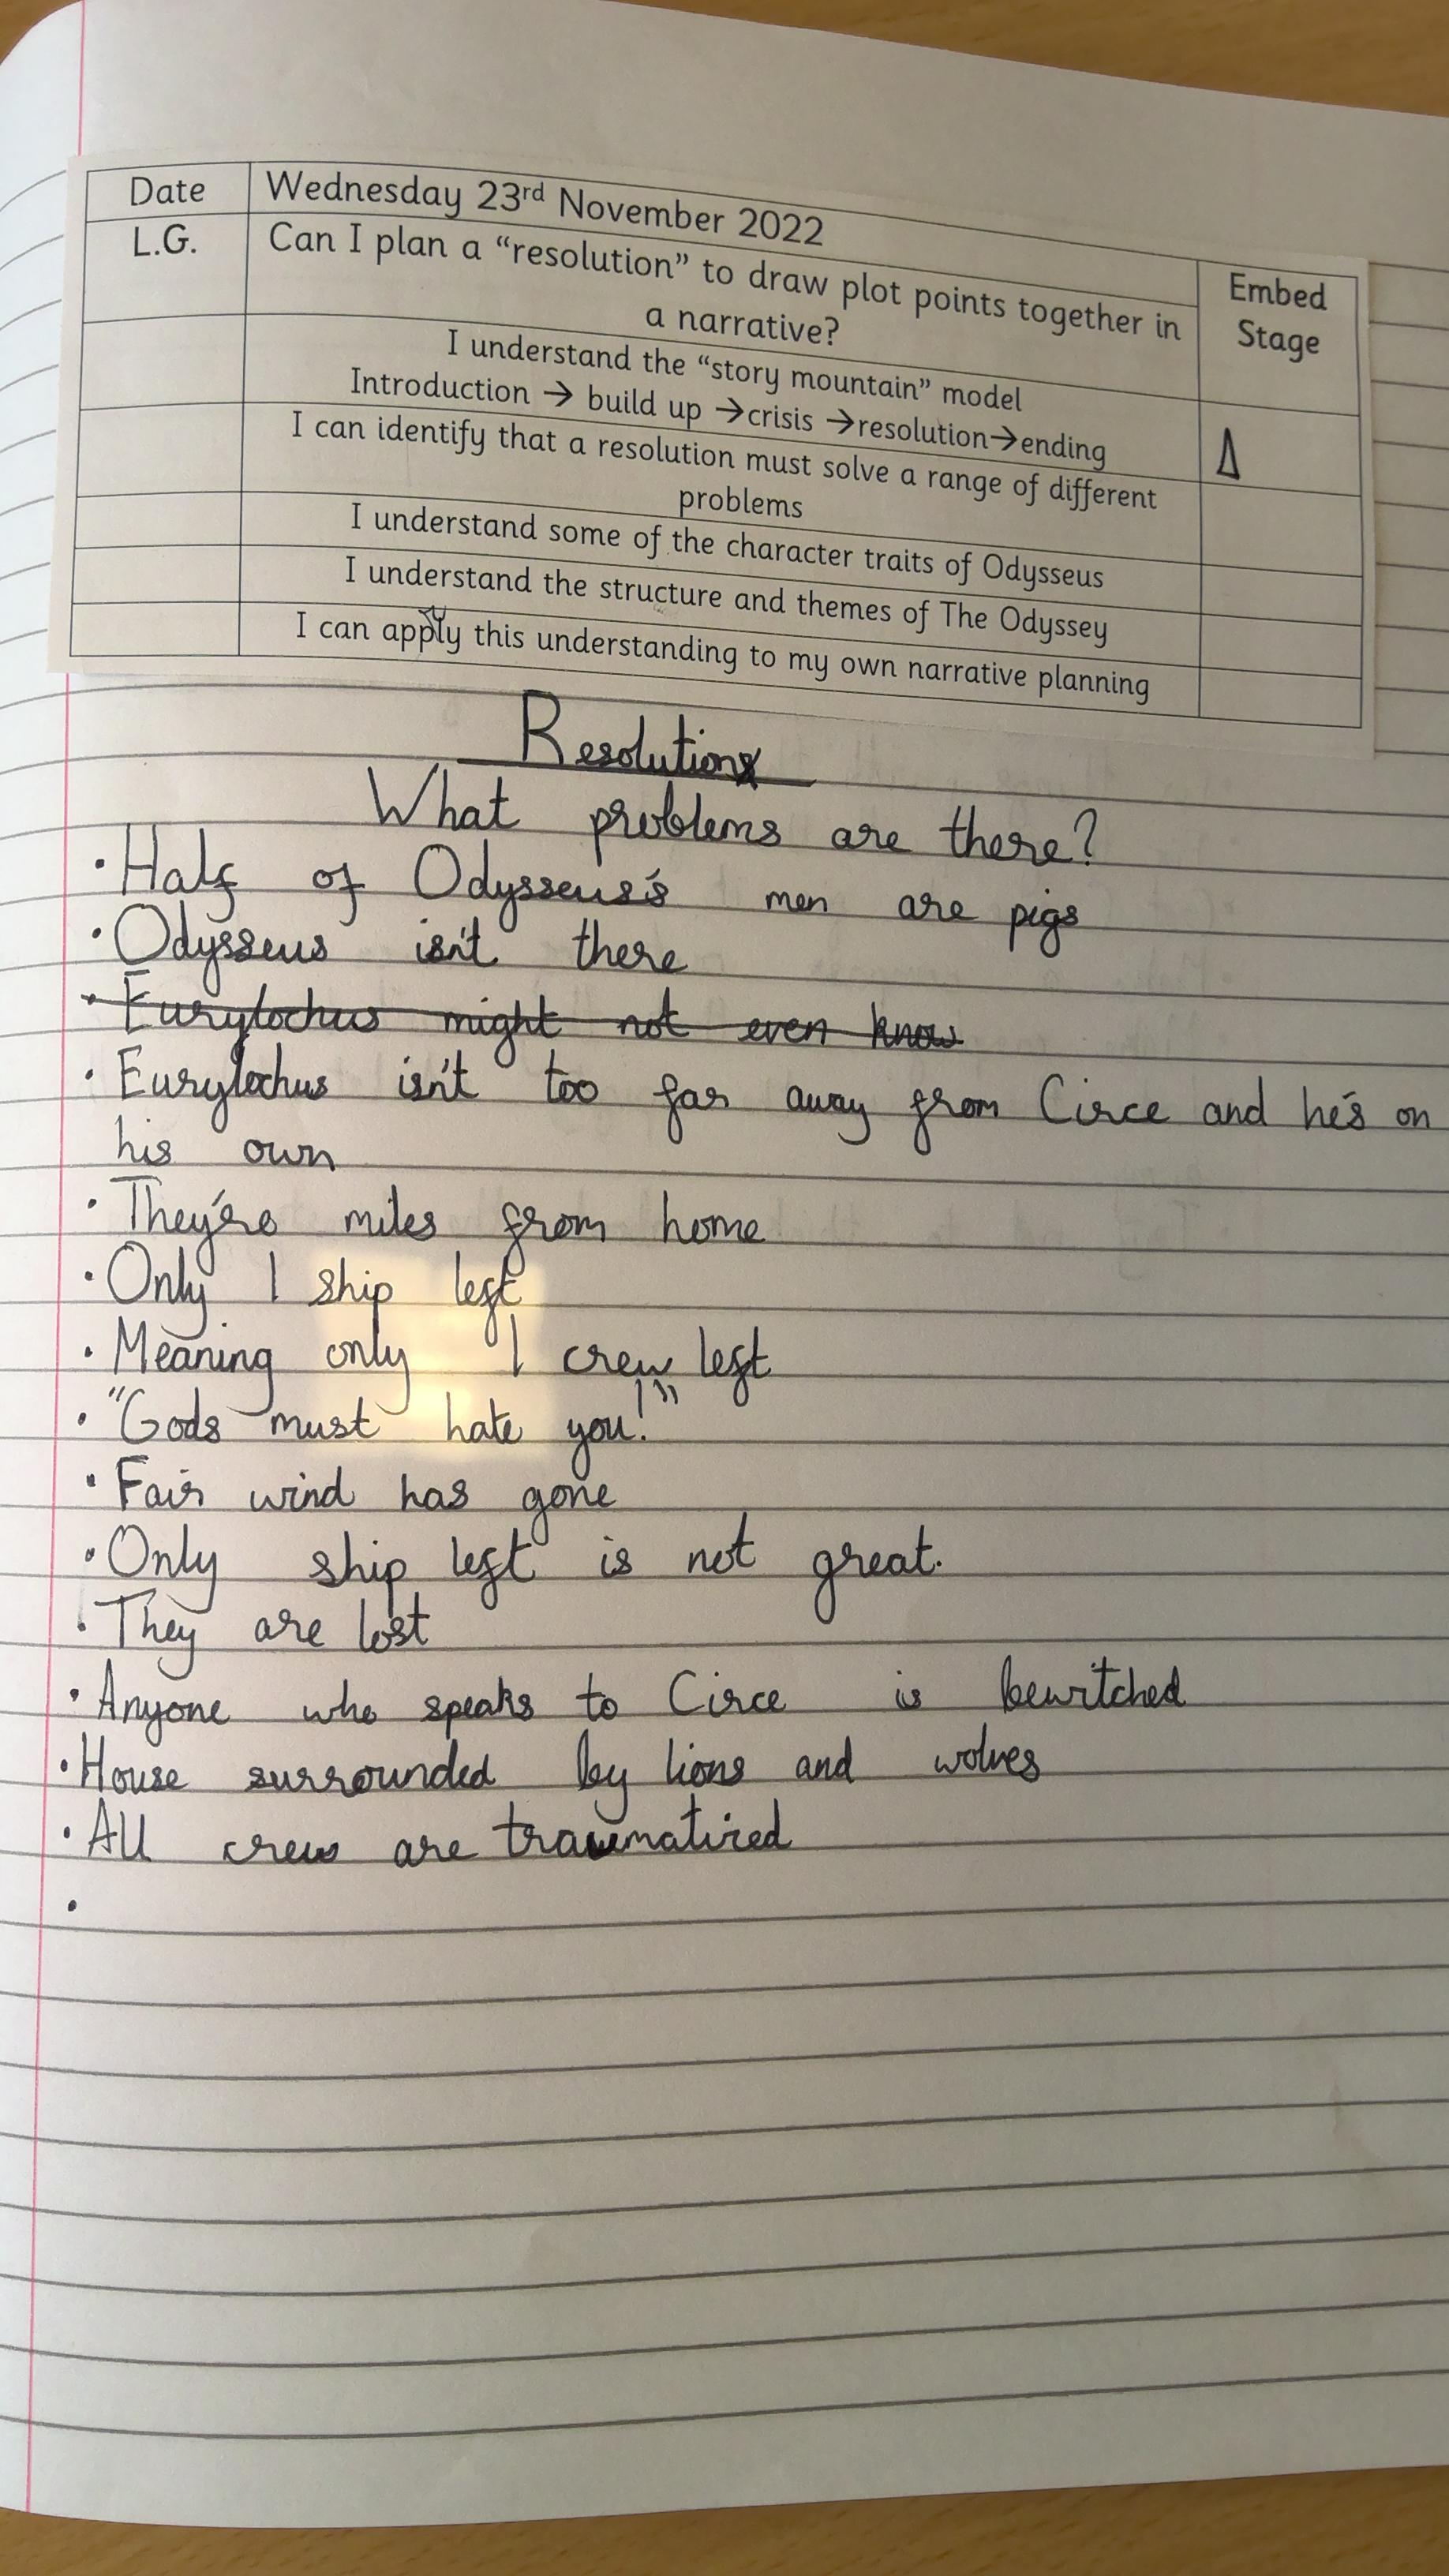 Date Wednesday 23rd November 2022
L.G. Can I plan a “resolution” to draw plot points together in Embed
a narrative? Stage
I understand the “story mountain” model
Introduction → build up →crisis →resolution→ending Δ
I can identify that a resolution must solve a range of different
problems
I understand some of the character traits of Odysseus
I understand the structure and themes of The Odyssey
I can apply this understanding to my own narrative planning
Resolution
What problems are there?
• Half of Odysseus's men are pigs
• Odysseus isn't there
• Eurylochus might not even know
• Eurylochus isn't too far away from Circe and he's on
his own
• They're miles from home
• Only 1 ship left
• Meaning only 1 crew left
• "Gods must hate you!"
• Fair wind has gone
• Only ship left is not great.
• They are lost
• Anyone who speaks to Circe is bewitched
• House surrounded by lions and wolves
• All crew are traumatized
•